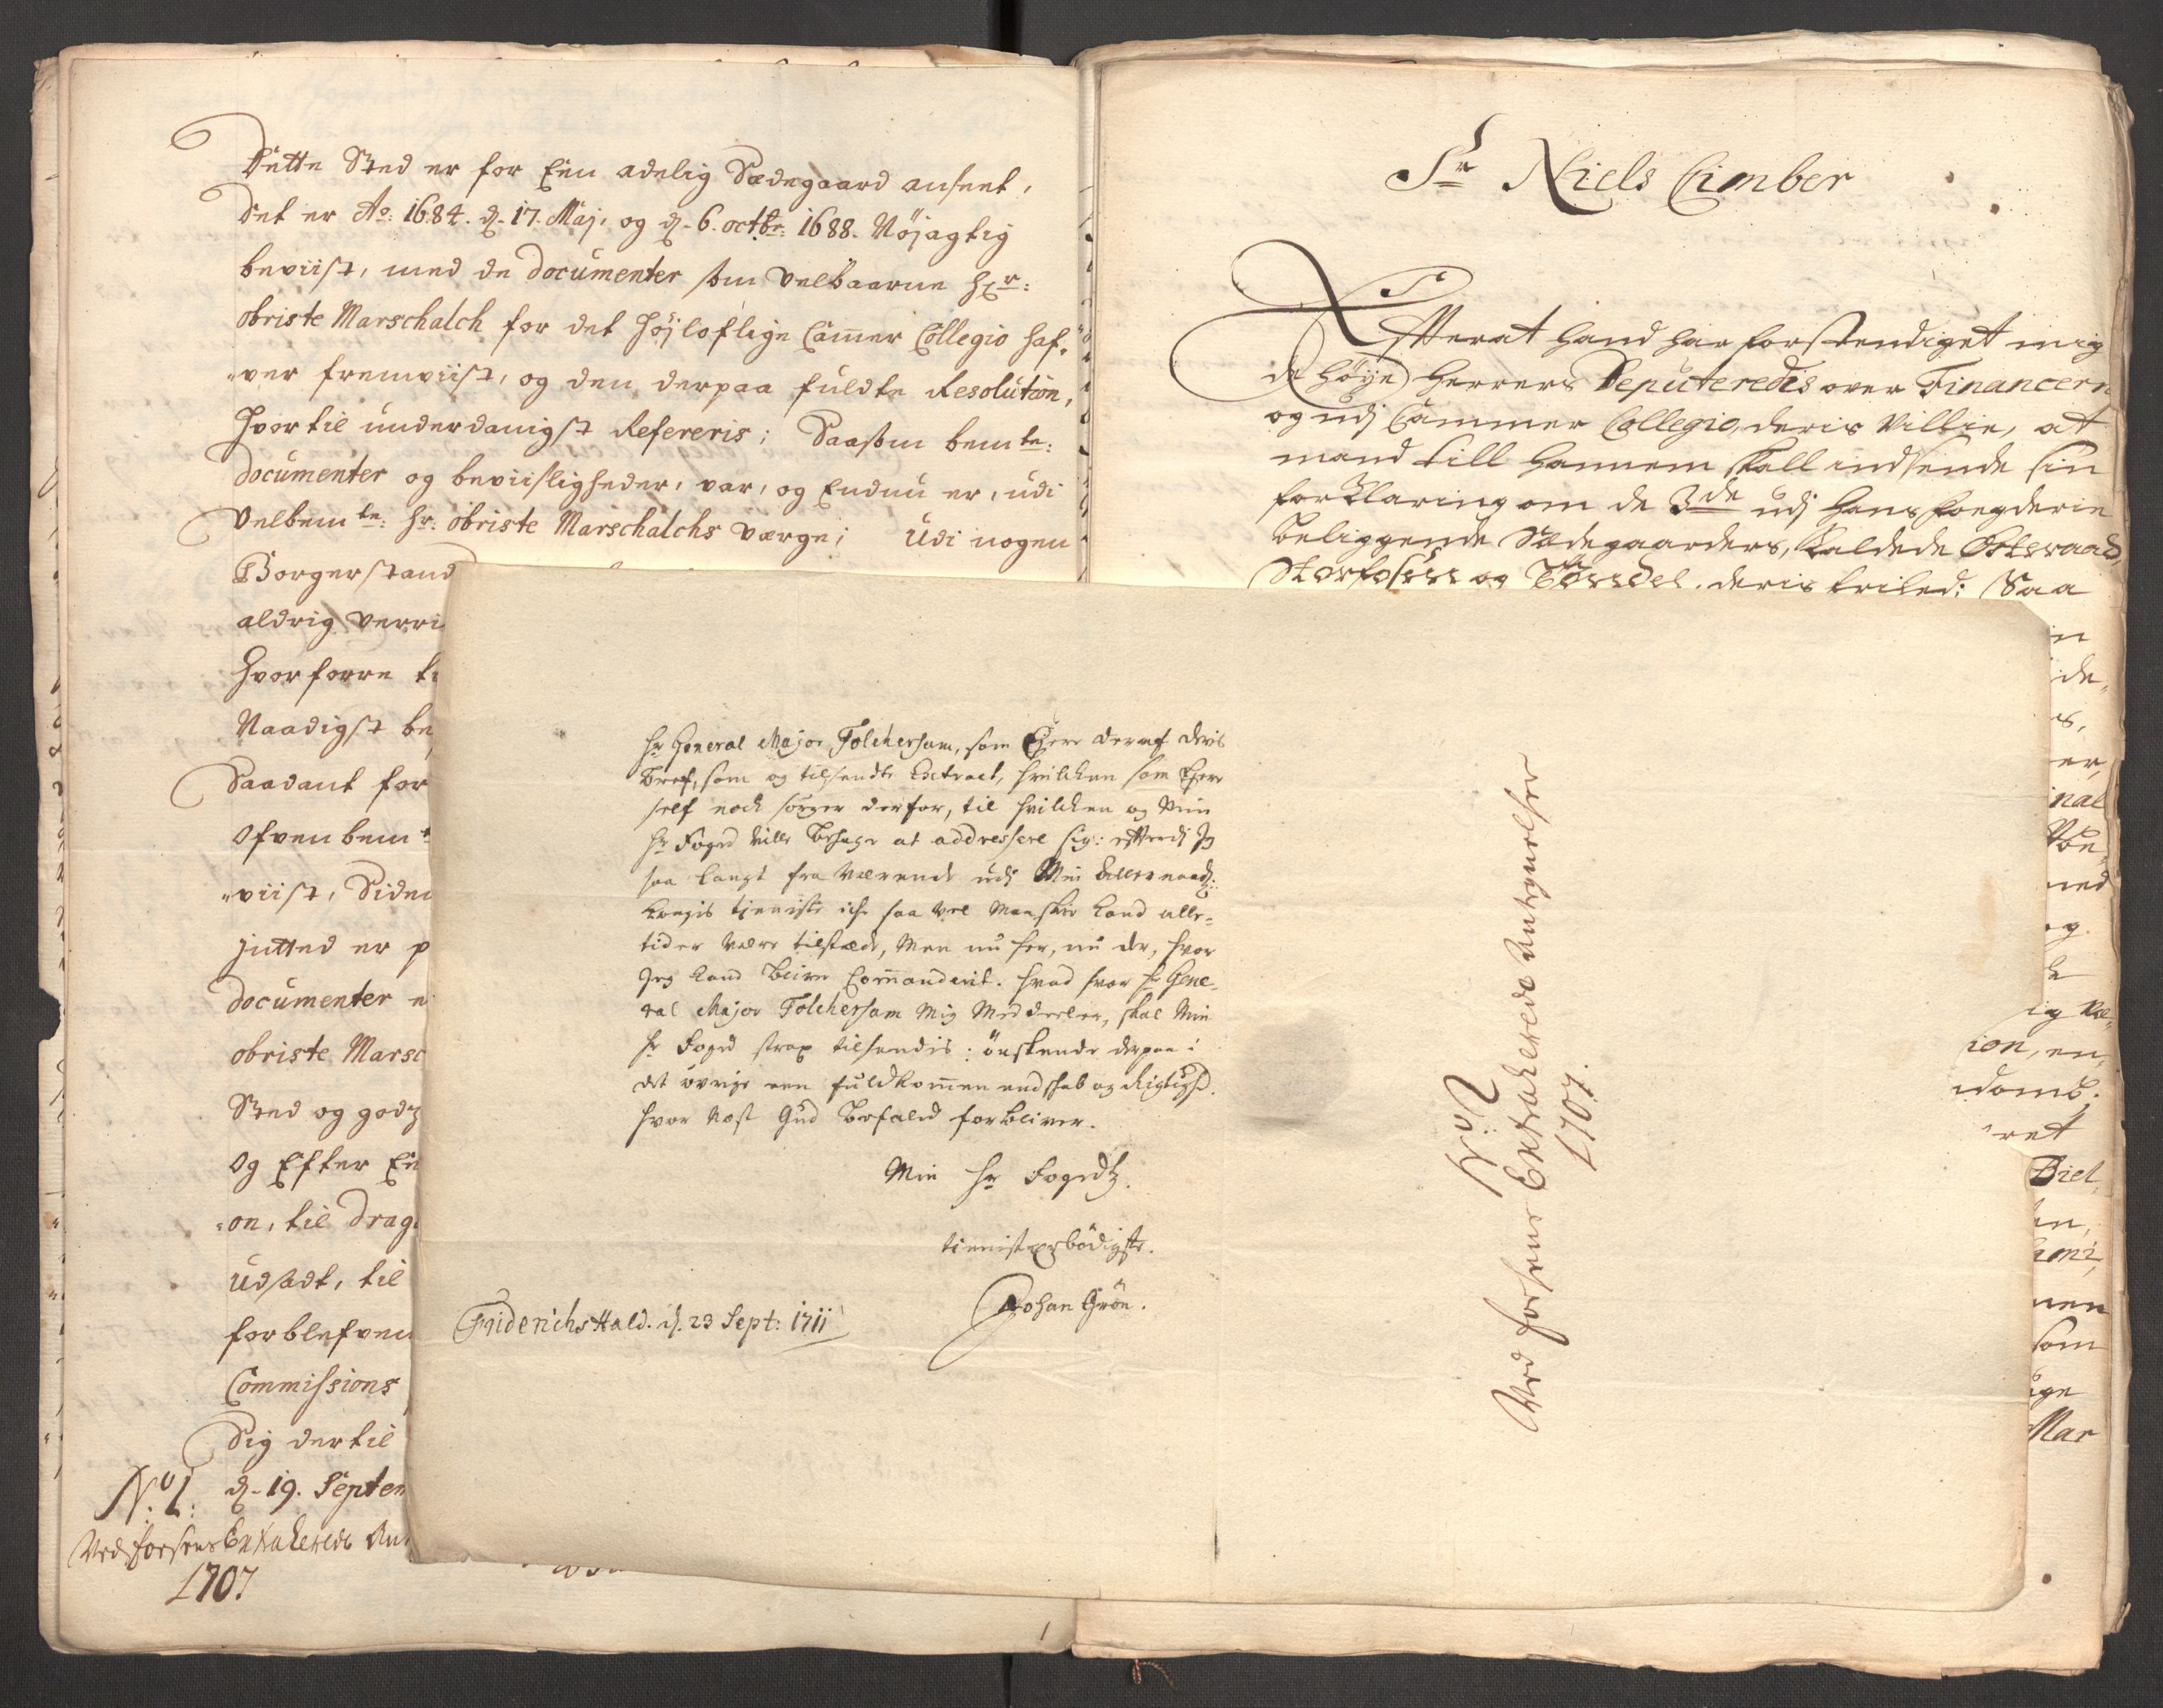 Dette Sted er for Een adelig Sædegaard anseet,
det er Ao: 1684. d. 17. Maj, og d. 6. octbr: 1688. Nöjagtig
beviist, med de documenter som Velbaarne Hr:
obriste Marschalch for det Höjloflige Cammer Collegio haf-
"ver fremviist, og den derpaa fuldte Resolution,
Hvortil underdanigst Refereris; Saasom bemte:
documenter og beviisligheder, var, og Endnu er, udi
Velbemte: Hr: obriste Marschalchs værge; Udi nogen
Borgerstand
aldrig verri
Hvorforre
Naadigst be
Saadant for
Ofvenbemt
"viist, Siden
jutted er p
documenter
obriste Marsc
Sted og godtz
Og Efter
"on, til drag
Udsadt, til
forblefven
Commissions
Sig dertil
d. 19. Septem
No: 1:
Ved forsens Extraherede An
1707
Sr Niels Cimber
Efterat Hand har forstendiget mig
de Höye Herrers Deputeredis over Financern
og udj Cammer Collegio, deris Villie, at
mand till Hannem skall indsende sin
forklaring om de 3de udj Hans fogderie
beliggende Sædegaarders, kaldede Østeraad,
Storfosen og Tönndel, deris frihed; Saa
de,
er,
inal
ned
og
ion, en,
domb.
ret
Biel,
en,
nen
som
Mar
Hr General Major Tolchersam, som Eyer deraf deris
bref, som og tilsendte Extract, hvilcken som Eyer
self noch sörger derfor, til hvilcken og Min
Hr Foged ville behage at addressere sig: efterdj Jeg
saa langt fra værende udj Min allernaadj:
Kongis tienniste iche saa vel Mansker kand alle-
tider være tilstæde, Men nu her, nu der, hvor
Jeg kand blive Commanderit. Hvad svar Hr Gene-
ral Major Tolchersam Mig Meddeeler, skal Min
Hr Foged strax tilsendis: önskende derpaa i
det övrige een fuldkommen endskab og Rigtighd.
hvor nest Gud befaled forbliver.
Min Hr Fogedtz.
tienistærbödigste.
Johan Grön.
Friderichs Hald. d. 23 Sept: 1711
No: 2
Ved forsens Extraherede Antegnelser
1707.